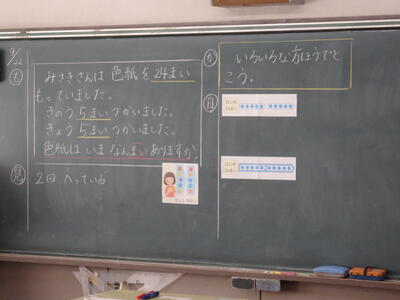 11/22
も
みさきさんは 色紙を 24まい
もっていました。
きのう 5まい つかいました。
きょう 5まい つかいました。
色紙は いま なんまい ありますか。
見
2回 へっている
か
いろいろな方ほうでと
こう。
自
はじめ
はじめ